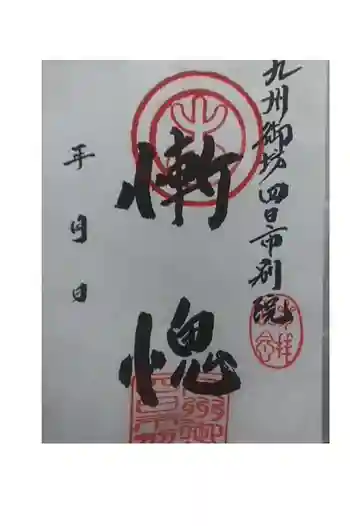 九州御坊四日市別院
慚愧
年 月 日